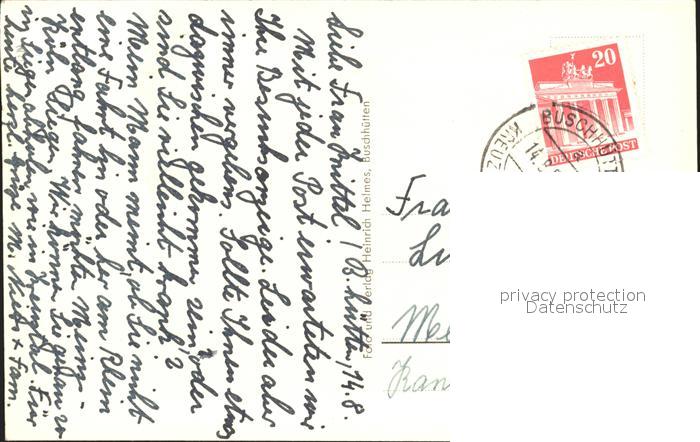 Liebe Frau
B. Hütten, 14.8.
Mit jeder Post erwarteten wir
Ihre Besuchsanzeige. Leider aber
immer vergebens. Sollte Ihnen etwas
dazwischen gekommen sein, oder
sind Sie vielleicht krank?
Mein Mann meint, ob Sie nicht
eine Fahrt in oder her am Rhein
entlang fahren möchten
Köln Siegen. Wir können Sie genau so
in Siegen abholen, wie in Kreuztal. Für
heute herzl. Grüße
Foto und Verlag Heinrich Helmes, Buschhütten
20
DEUTSCHE POST
BUSCHHÜTT
14.8
Fra
Lu
Me
privacy protection
Datenschutz